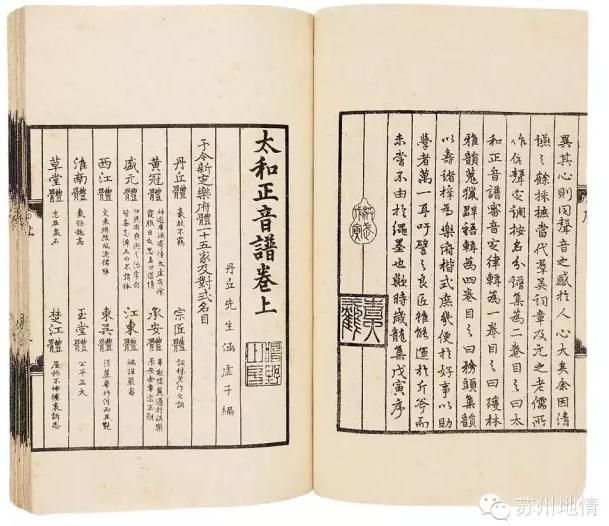 異其心則因聲音之感於人心大矣余因清
讌之餘採摭當代羣英詞章及元之老儒所
作依聲定調按名分譜集為二卷目之曰太
和正音譜審音定律輯為一卷目之曰瓊林
雅韻蒐獵羣語輯為四卷目之曰務頭集韻
以壽諸梓為樂府楷式庶幾便於好事以助
學者萬一耳吁譬之良匠雖能運於斤斧而
未嘗不由於繩墨也歟時歲龍集戊寅序
太和正音譜卷上
丹丘先生涵虛子編
予今新定樂府體一十五家及對式名目
丹丘體 豪放不羈
宗匠體 詞林老作之詞
黃冠體 神遊廣漠寄情太虛有餐霞服日之思名曰道情
承安體 華觀偉麗過於泆樂承安金章宗正朝
盛元體 快然有雍熙之治字句皆無忌憚又曰不諱體
江東體 端謹嚴密
西江體 文采煥然風流儒雅
東吳體 清麗華巧浮而且艷
淮南體 氣勁趣高
玉堂體 公平正大
草堂體 志在泉石
楚江體 屈抑不伸攄衷訴志
苏州地情